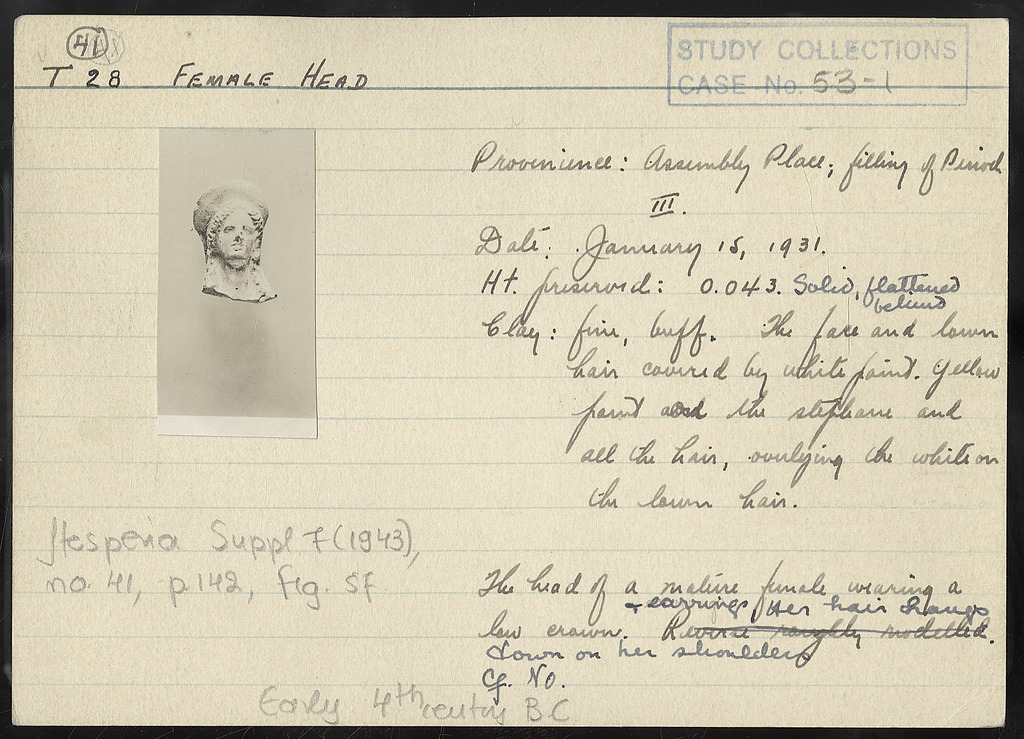 41
T 28 FEMALE HEAD
STUDY COLLECTIONS
CASE No. 53-1
Provenience: Assembly Place; filling of Period
III.
Date: January 15, 1931.
Ht. preserved: 0.043. Solid, flattened
behind
Clay: fine, buff. The face and lower
hair covered by white paint. Yellow
paint on the stephane and
all the hair, overlying the white on
the lower hair.
Hesperia Suppl. 7 (1943),
no. 41, p. 142, fig. 57
The head of a mature female wearing a
+ earrings, Her hair hangs
low crown. Reverse roughly modelled.
down on her shoulders
Cf. No.
Early 4th century BC